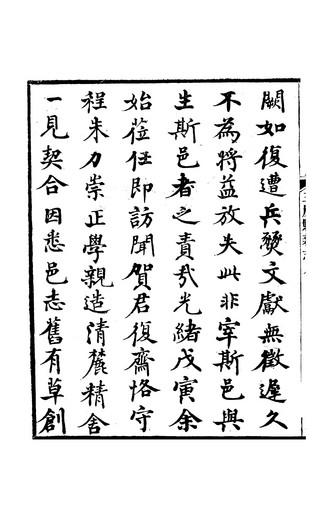 闕如復遭兵燹文獻無徵遲久
不為將益放失此非宰斯邑與
生斯邑者之責㢤光緒戊寅余
始莅任即訪聞賀君復齋恪守
程朱力崇正學親造清麓精舍
一見契合因悉邑志舊有草創